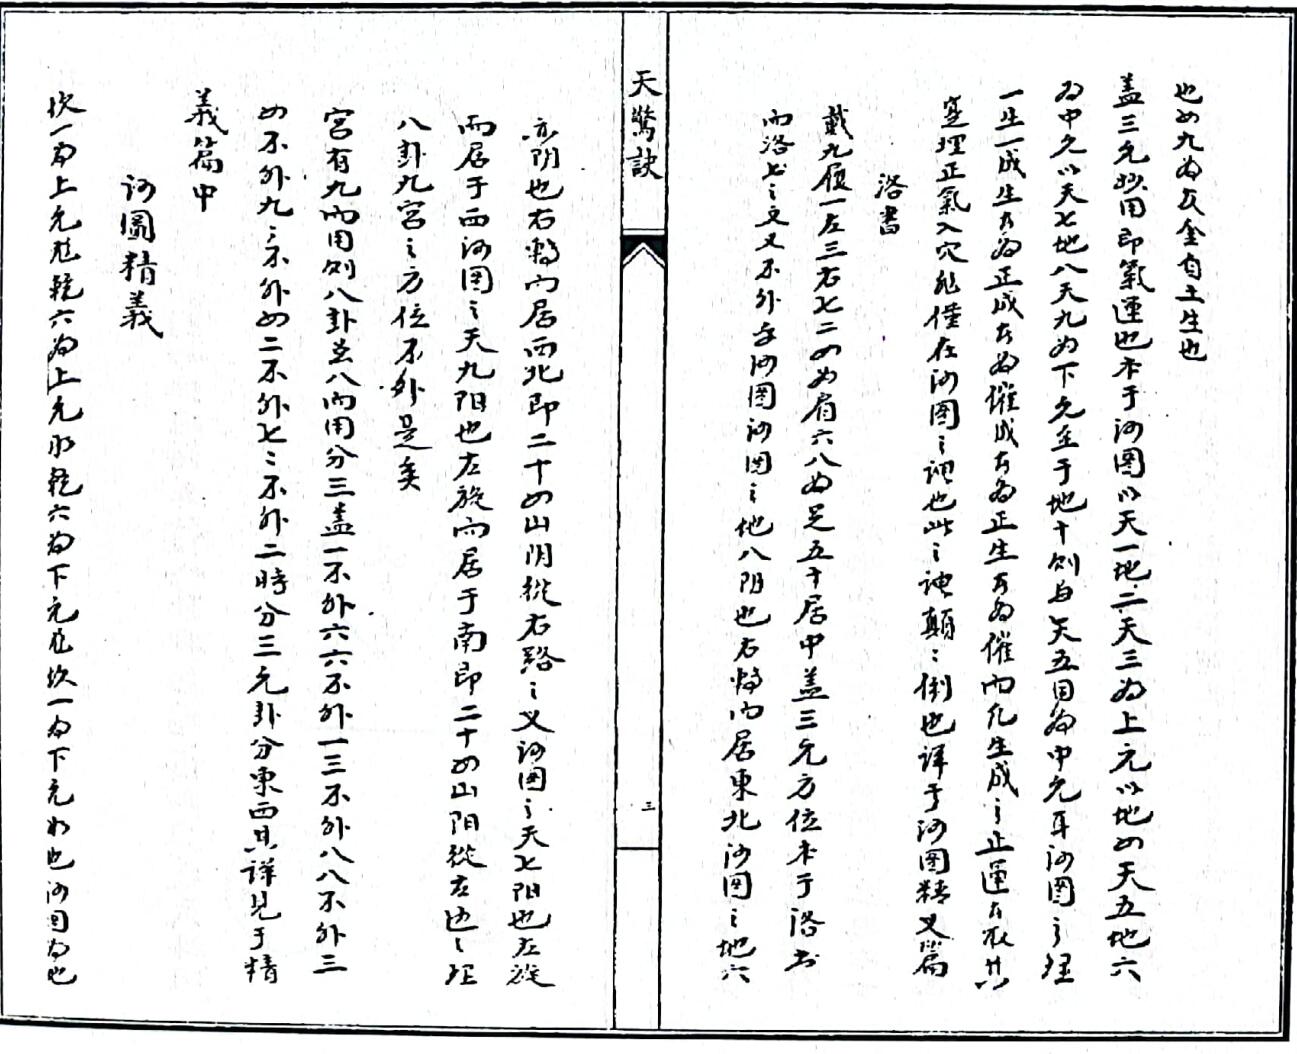 也四九為友金自土生也
盖三元妙用即氣運也本于河图以天一地二天三為上元以地四天五地六
為中元以天七地八天九為下元至于地十则与天五同為中元耳河图之理
一生一成生者為正成者為催成者為正生者為催而凡生成之正運者取其
塞理正氣入穴能催在河图之訣也此之訣顛倒也详于河图精义篇
洛書
戴九履一左三右七二四為肩六八為足五十居中盖三元方位本于洛书
而洛书之文又不外乎河图河图之地八阴也右轉而居東北河图之地六
亦阴也右轉而居西北即二十四山阴從右路之义河图之天七阳也左旋
而居于西河图之天九阳也左旋而居于南即二十四山阳從左边之理
八卦九宫之方位不外是矣
宫有九而用则八卦言八而用分三盖一不外六六不外一三不外八八不外三
四不外九九不外四二不外七七不外二時分三元卦分東西具详見于精
義篇中
河圖精義
坎一為上元 乾六為上元 乾六為下元 坎一為下元 也河图為也
天驚訣
三